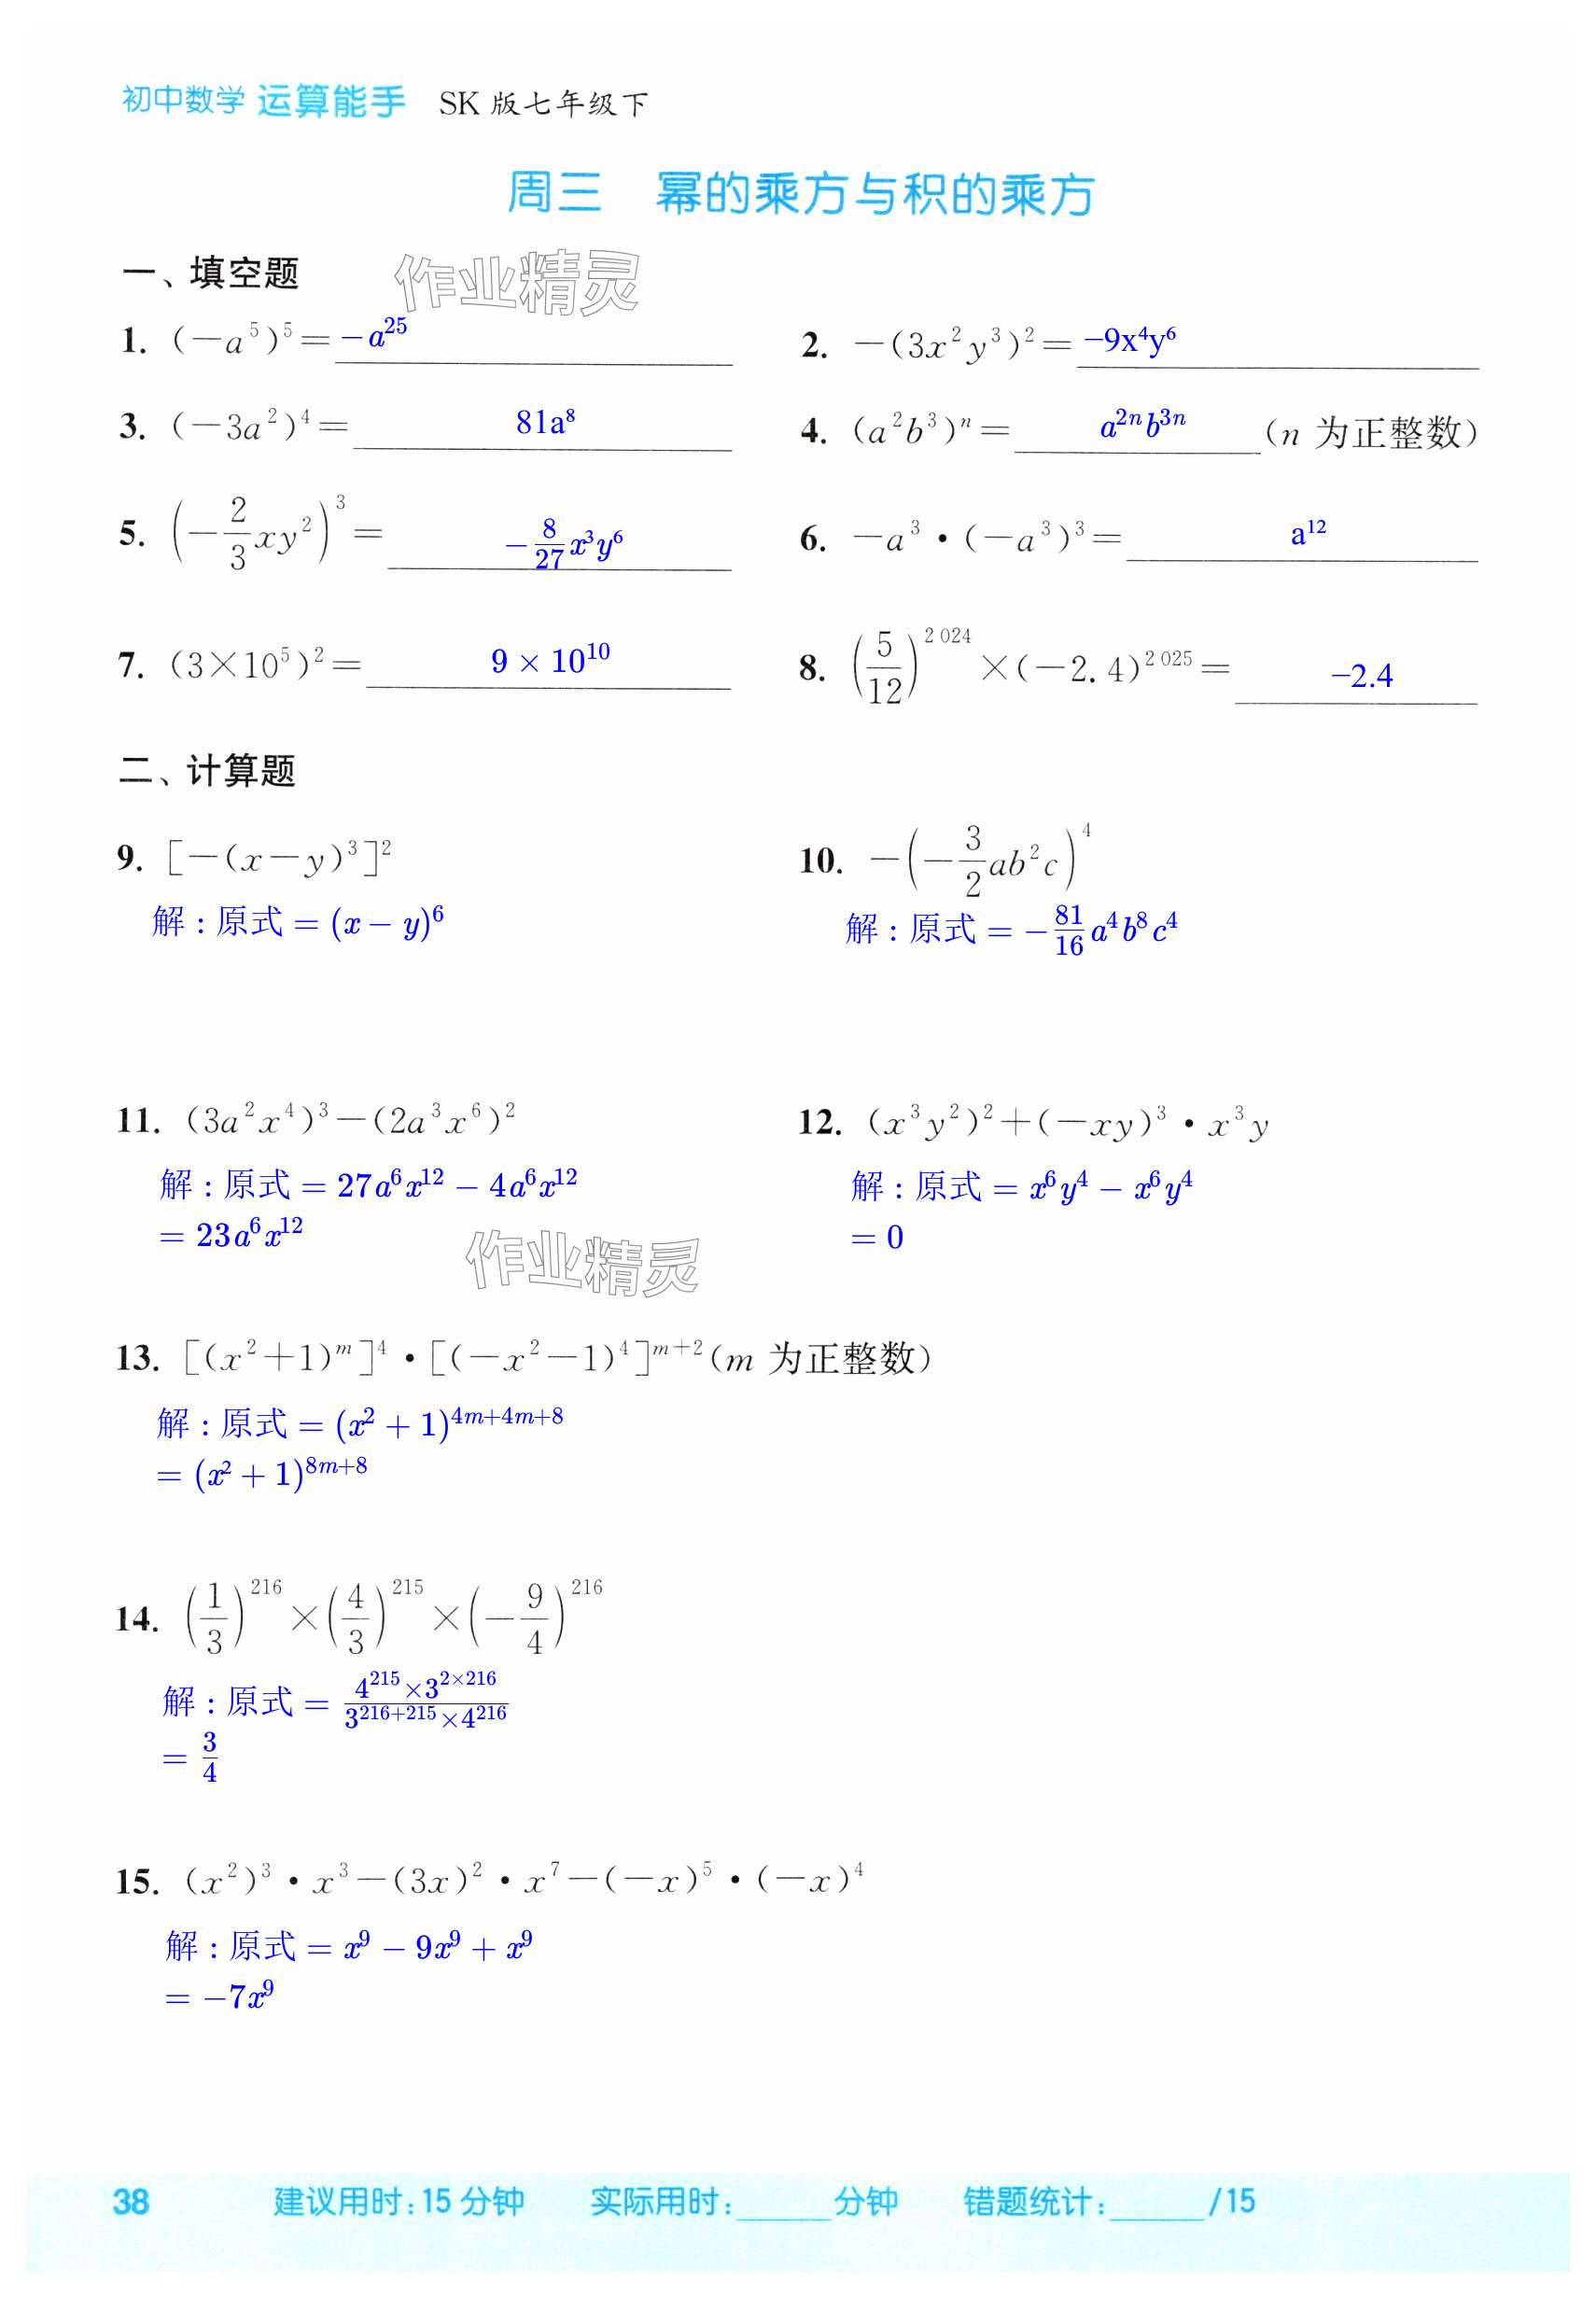 初中数学 运算能手 SK 版七年级下
周三 幂的乘方与积的乘方
一、填空题
作业精灵
1. (−a⁵)⁵= −a²⁵
2. −(3x²y³)²= −9x⁴y⁶
3. (−3a²)⁴= 81a⁸
4. (a²b³)ⁿ= a²ⁿb³ⁿ (n 为正整数)
5. (−2/3 xy²)³= −8/27 x³y⁶
6. −a³·(−a³)³= a¹²
7. (3×10⁵)²= 9 × 10¹⁰
8. (5/12)^2 024 ×(−2.4)^2 025= −2.4
二、计算题
9. [−(x−y)³]²
解 : 原式 = (x − y)⁶
10. −(−3/2 ab²c)⁴
解 : 原式 = −81/16 a⁴b⁸c⁴
11. (3a²x⁴)³−(2a³x⁶)²
解 : 原式 = 27a⁶x¹² − 4a⁶x¹²
= 23a⁶x¹²
12. (x³y²)²+(−xy)³·x³y
解 : 原式 = x⁶y⁴ − x⁶y⁴
= 0
作业精灵
13. [(x²+1)^m]⁴·[(−x²−1)⁴]^(m+2)(m 为正整数)
解 : 原式 = (x² + 1)^(4m+4m+8)
= (x² + 1)^(8m+8)
14. (1/3)^216 ×(4/3)^215 ×(−9/4)^216
解 : 原式 = (4^215 × 3^(2×216))/(3^(216+215) × 4^216)
= 3/4
15. (x²)³·x³−(3x)²·x⁷−(−x)⁵·(−x)⁴
解 : 原式 = x⁹ − 9x⁹ + x⁹
= −7x⁹
38 建议用时:15 分钟 实际用时:____分钟 错题统计:____/15